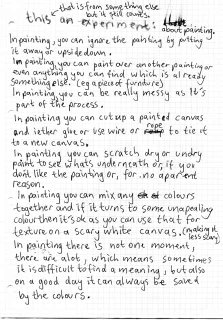 that is from something else
but it still counts.
this an experiment: about painting.
In painting, you can ignore the painting by putting
it away or upside down.
In painting you can paint over another painting or
even anything you can find which is already
something else. (eg a piece of furniture)
In painting you can be really messy as it's
part of the process.
In painting you can cut up a painted canvas
and iether glue or use wire or rope to tie it
to a new canvas.
In painting you can scratch dry or undry
paint to see whats underneath or, if you
dont like the painting or, for no aparent
reason.
In painting you can mix any colours
together and if it turns to some unapealing
colour then it's ok as you can use that for
texture on a scary white canvas. (making it
less scary)
In painting there is not one moment,
there are alot, which means sometimes
it is difficult to find a meaning, but also
on a good day it can always be saved
by the colours.